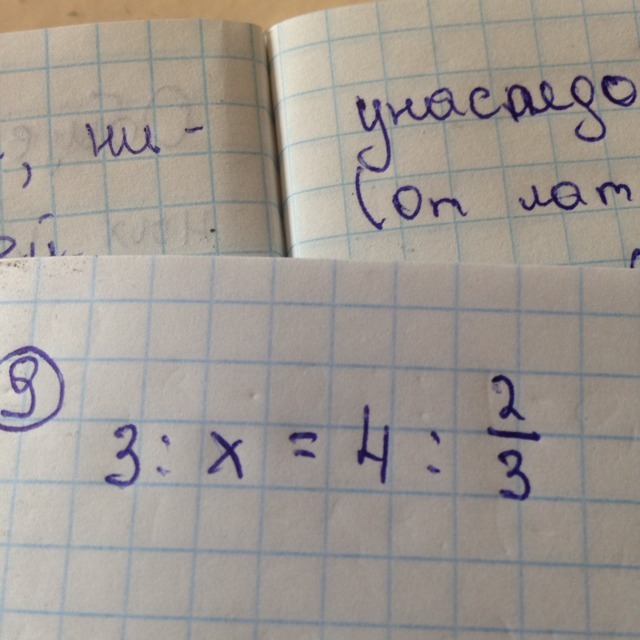 , ни-
ей
унаследо
(от лат
9
3 : x = 4 : 2/3